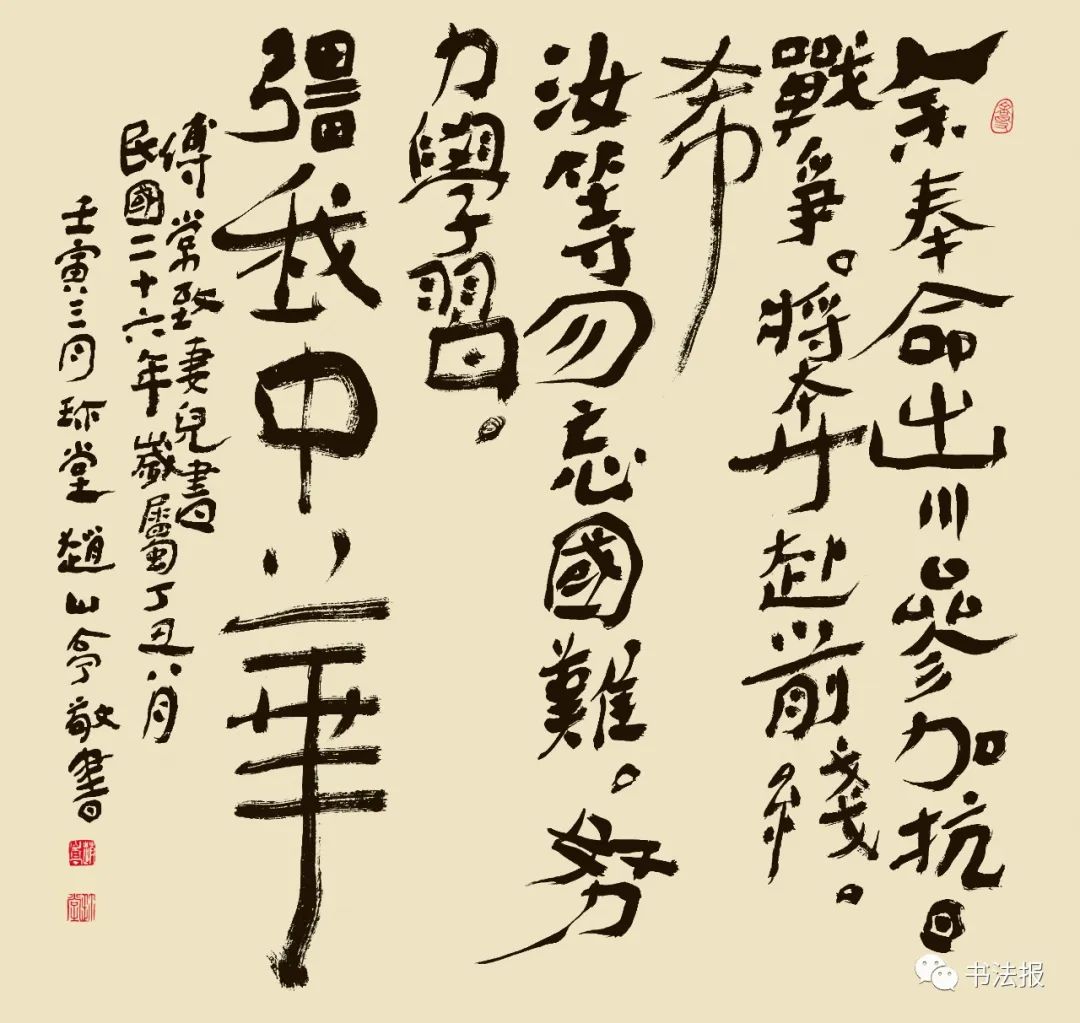 余奉命出川參加抗日
戰爭。將奔赴前綫。
希
汝等勿忘國難。努
力學習。
彊我中華
傅常致妻兒書
民國二十六年歲屬丁丑八月
壬寅三月珎堂趙山亭敬書
书法报